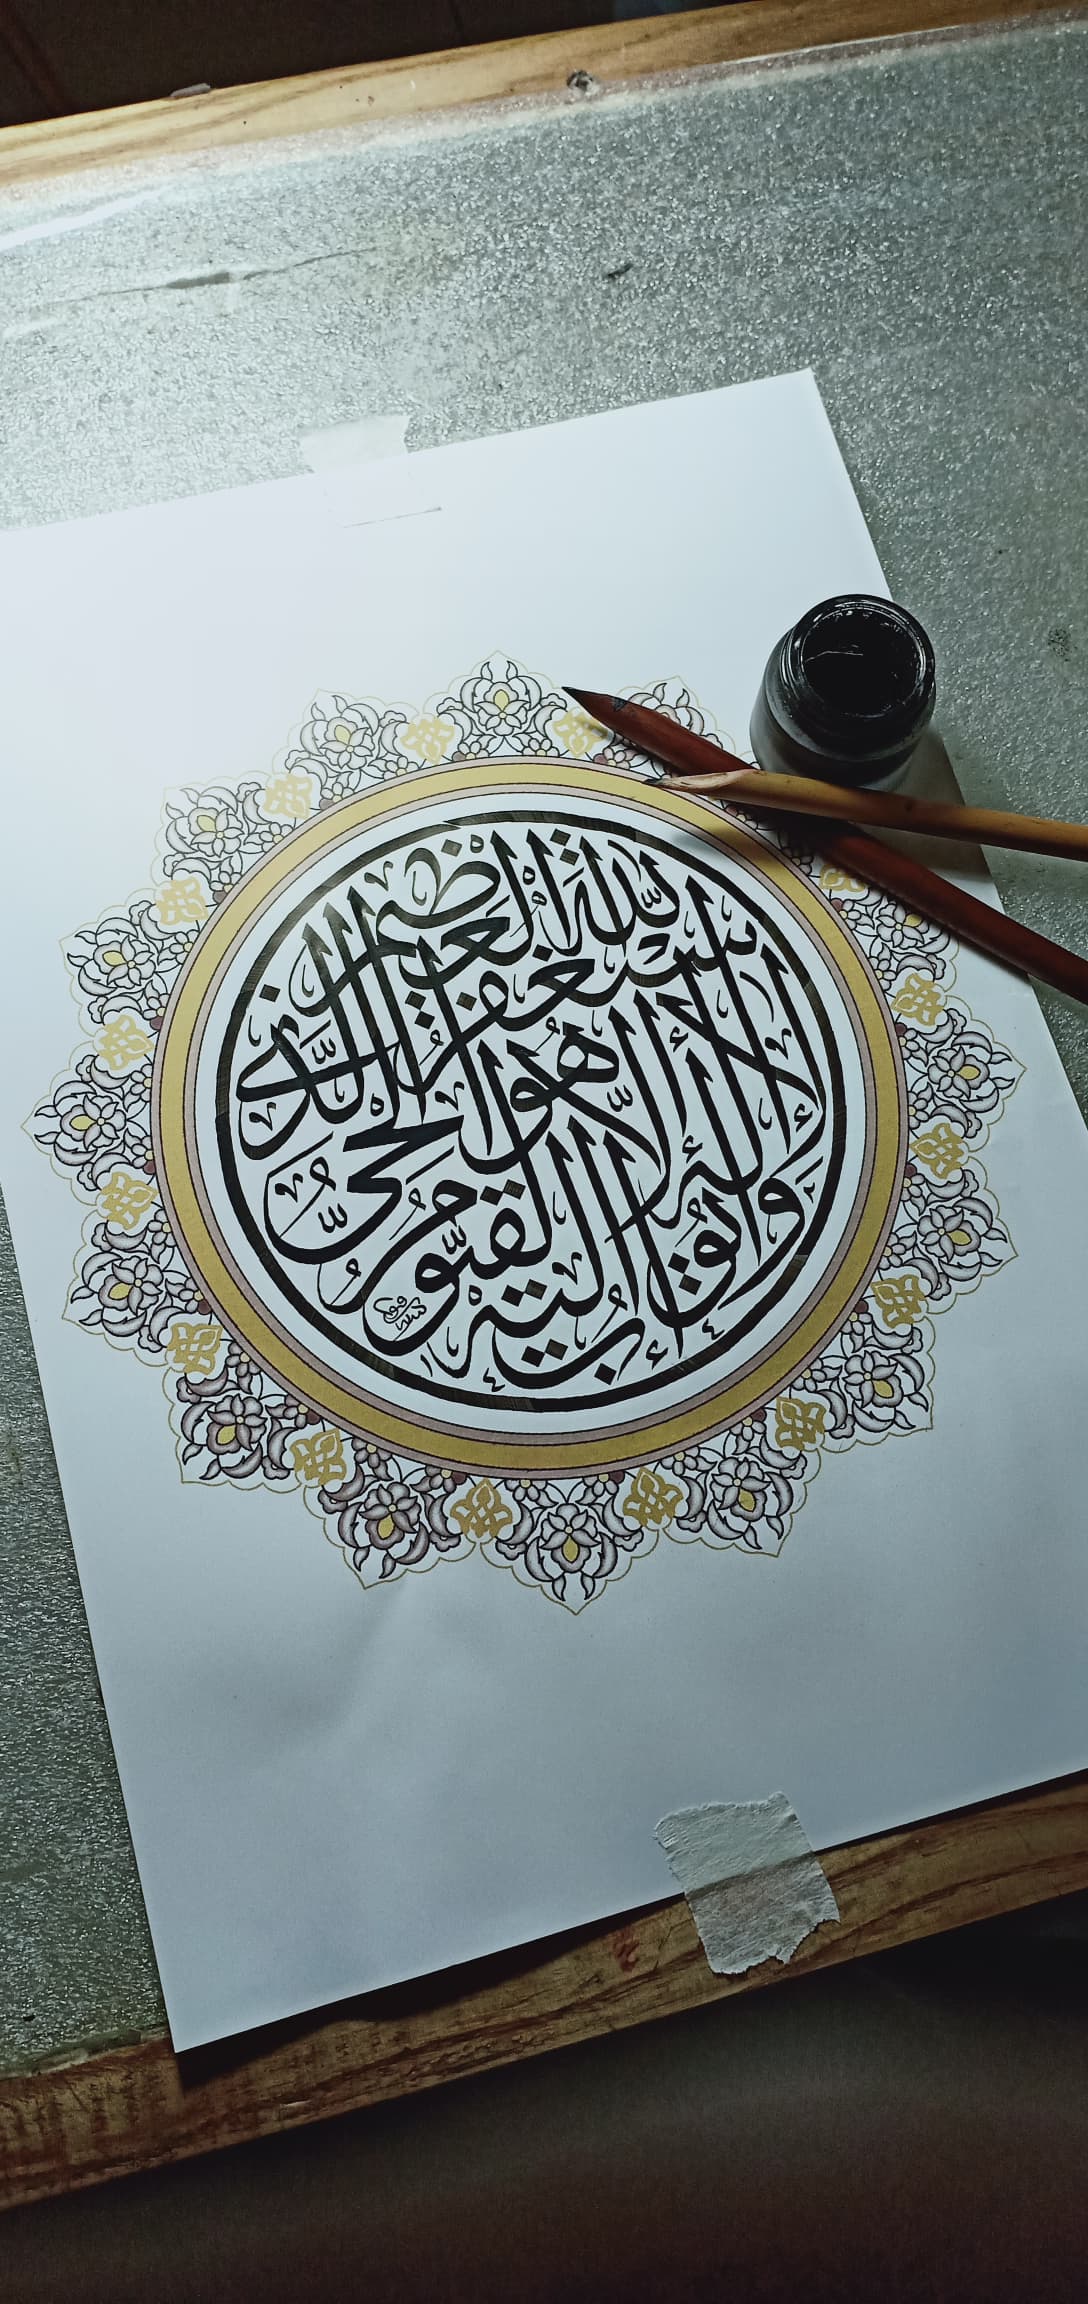 أستغفر الله العظيم الذي لا إله إلا هو الحي القيوم وأتوب إليه